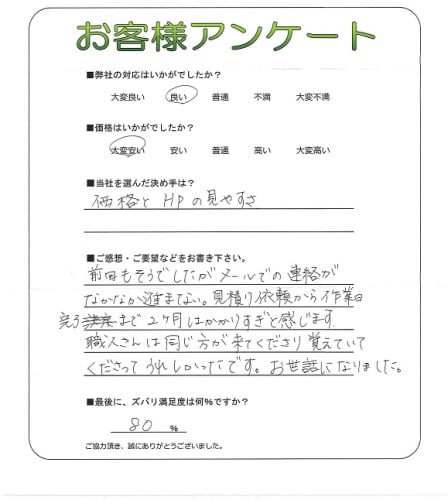 お客様アンケート
■弊社の対応はいかがでしたか？
大変良い 良い 普通 不満 大変不満
■価格はいかがでしたか？
大変安い 安い 普通 高い 大変高い
■当社を選んだ決め手は？
価格と HPの見やすさ
■ご感想・ご要望などをお書き下さい。
前回もそうでしたがメールでの連絡が
なかなか進まない。見積り依頼から作業日
完了まで 2ヶ月はかかりすぎと感じます
職人さんは同じ方が来てくださり覚えていて
くださってうれしかったです。お世話になりました。
■最後に、ズバリ満足度は何%ですか？
80 %
ご協力頂き、誠にありがとうございました。